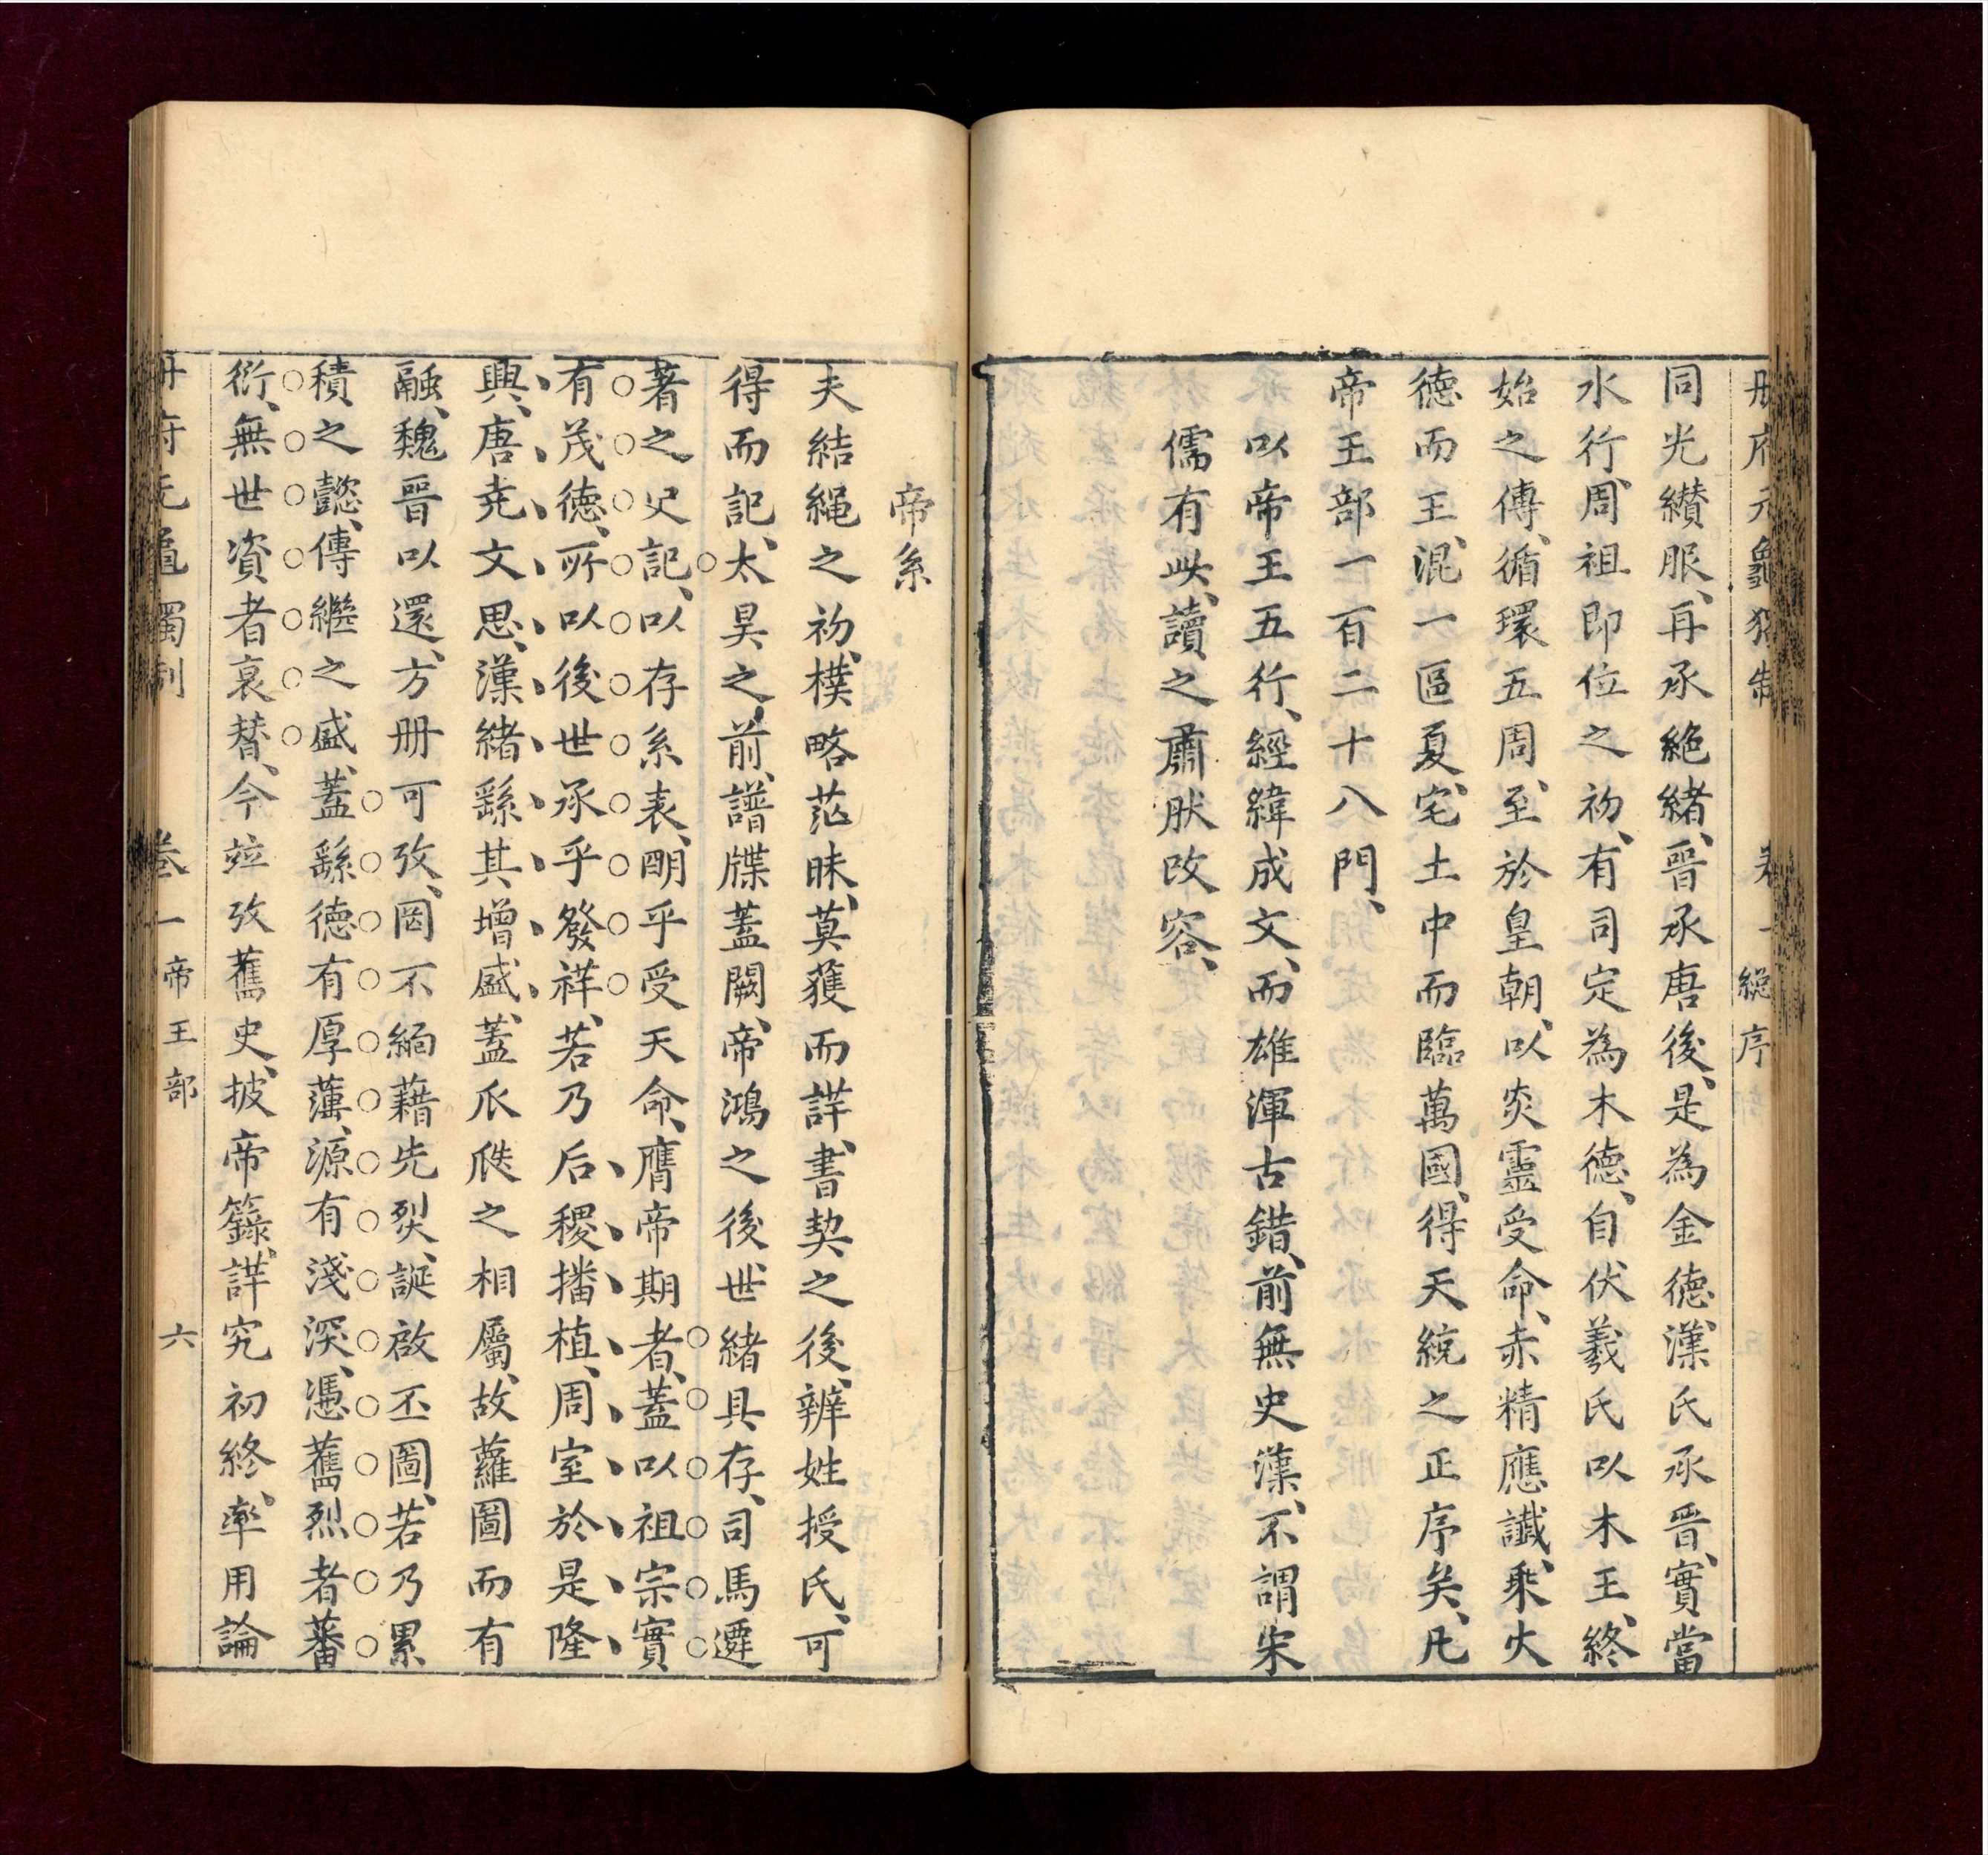 册府元龜獨制 卷一 總序
同光纉服、再承絶緒、晉承唐後、是為金德、漢氏承晉、實當
水行、周祖即位之初、有司定為木德、自伏羲氏以木王、終
始之傳、循環五周、至於皇朝、以炎靈受命、赤精應讖、乘火
德而王、混一區夏、宅土中而臨萬國、得天統之正序矣、凡
帝王部一百二十八門、
以帝王五行、經緯成文、而雄渾古錯、前無史漢、不謂宋
儒有此、讀之肅肰改容、
帝系
夫結繩之初、樸略茫昧、莫獲而詳、書契之後、辨姓授氏、可
得而記、太昊之前、譜牒蓋闕、帝鴻之後、世緒具存、司馬遷
著之史記、以存系表、明乎受天命、膺帝期者、蓋以祖宗實
有茂德、所以後世承乎發祥、若乃后稷播植、周室於是隆
興、唐尭文思、漢緒繇其增盛、蓋瓜瓞之相屬、故蘿圖而有
融、魏晉以還、方册可攷、罔不緬藉先烈、誕啟丕圖、若乃累
積之懿、傳繼之盛、蓋繇德有厚薄、源有淺深、憑舊烈者蕃
衍、無世資者衰替、今竝攷舊史、披帝籙、詳究初終、率用論
册府元龜獨制 卷一 帝王部 六